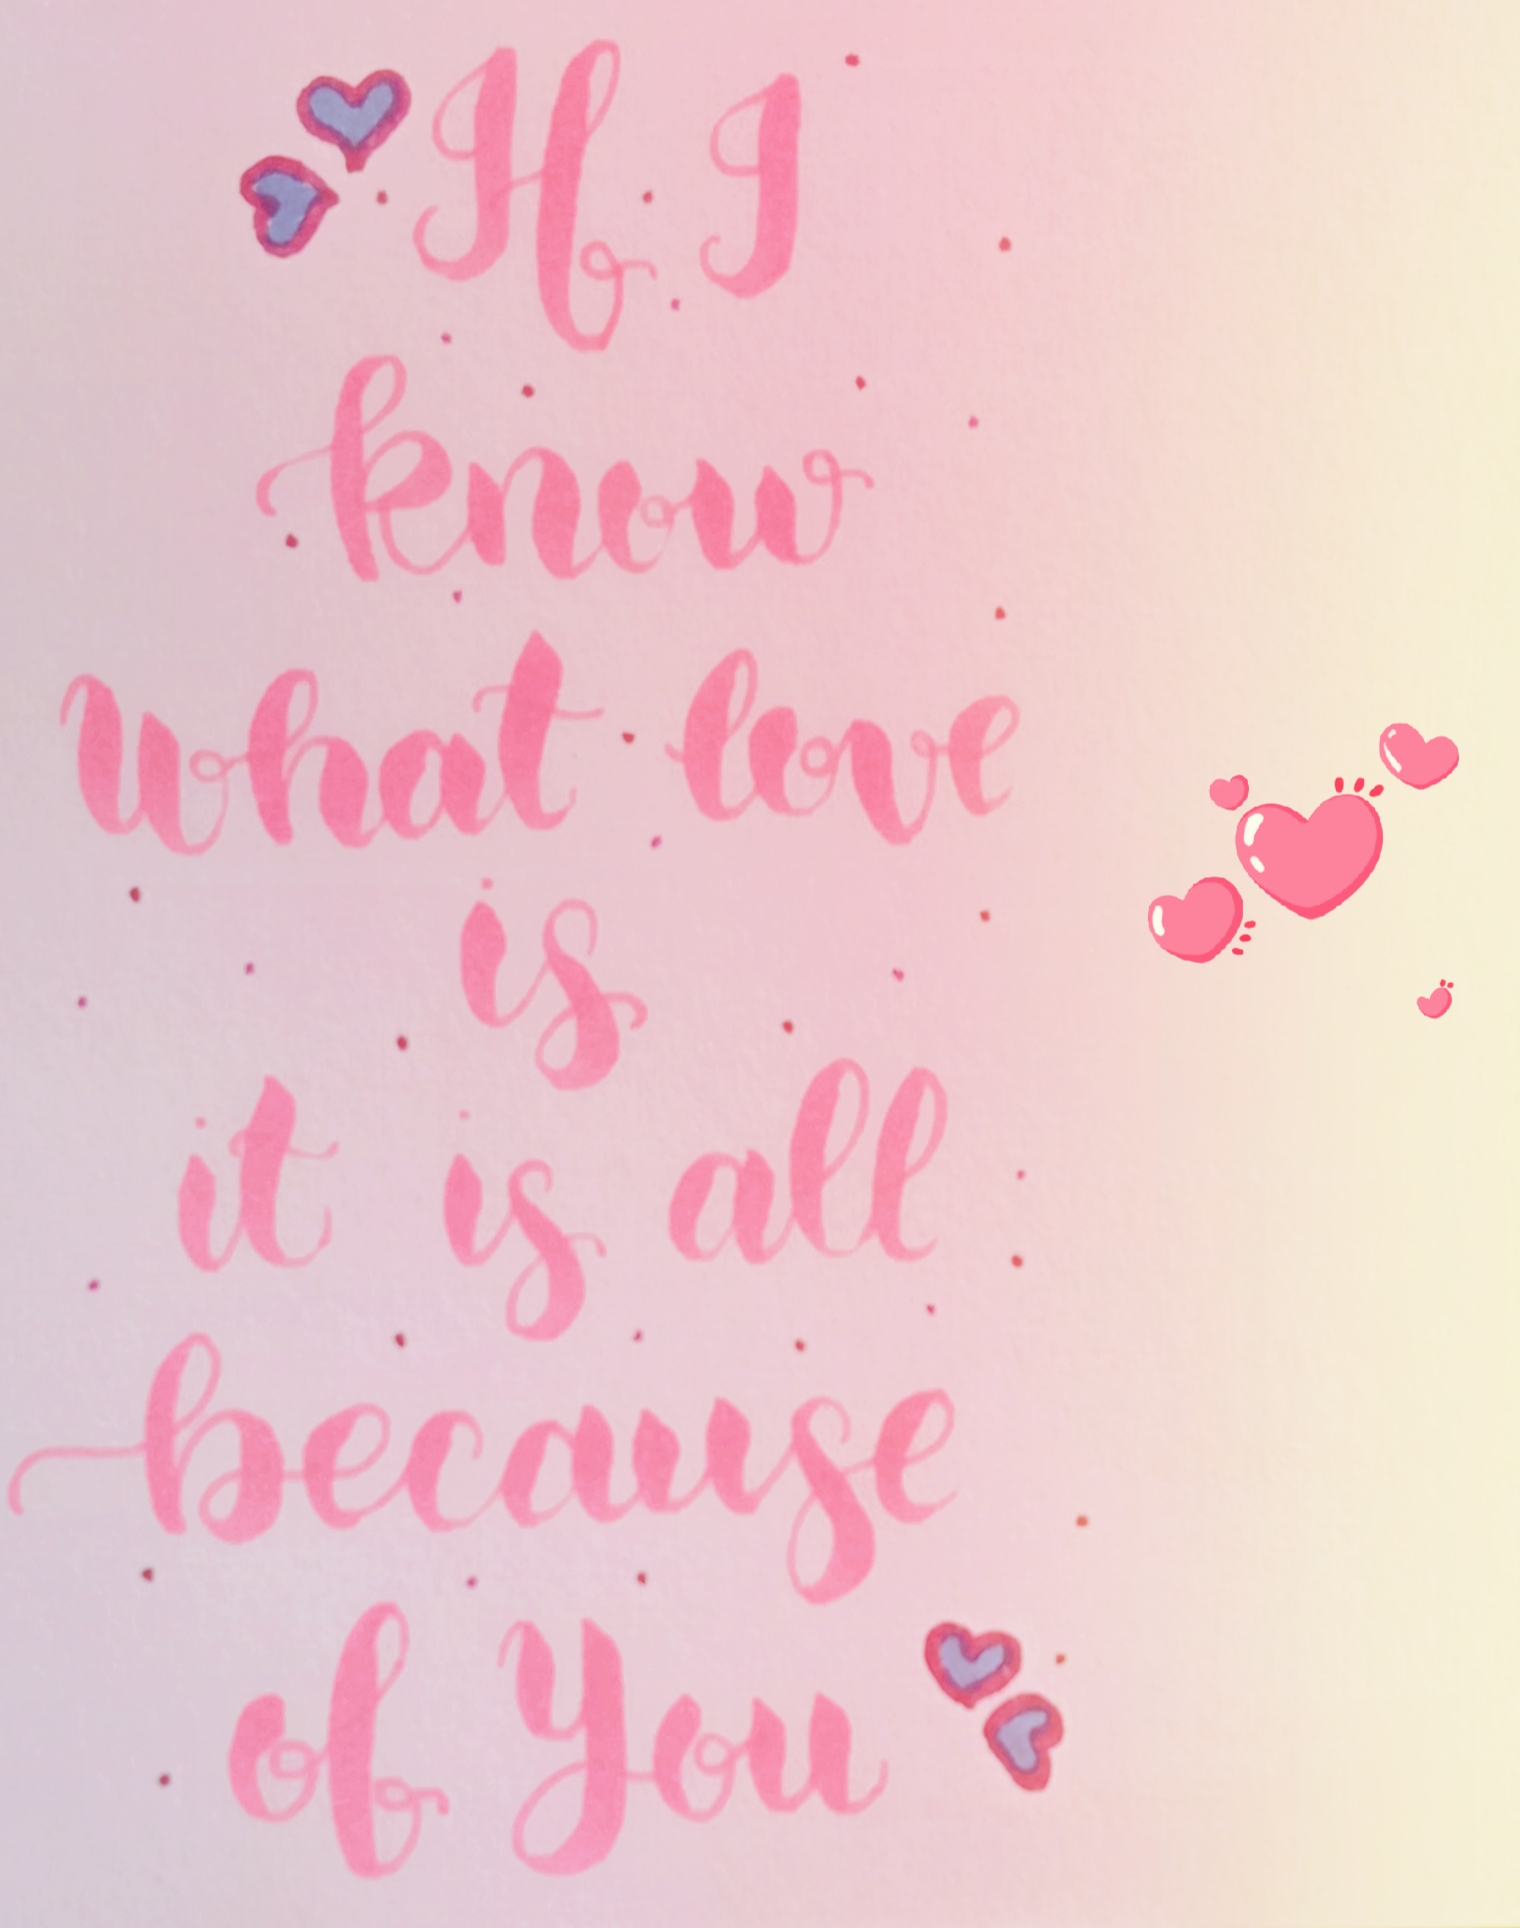 If I
know
what love
is
it is all
because
of You